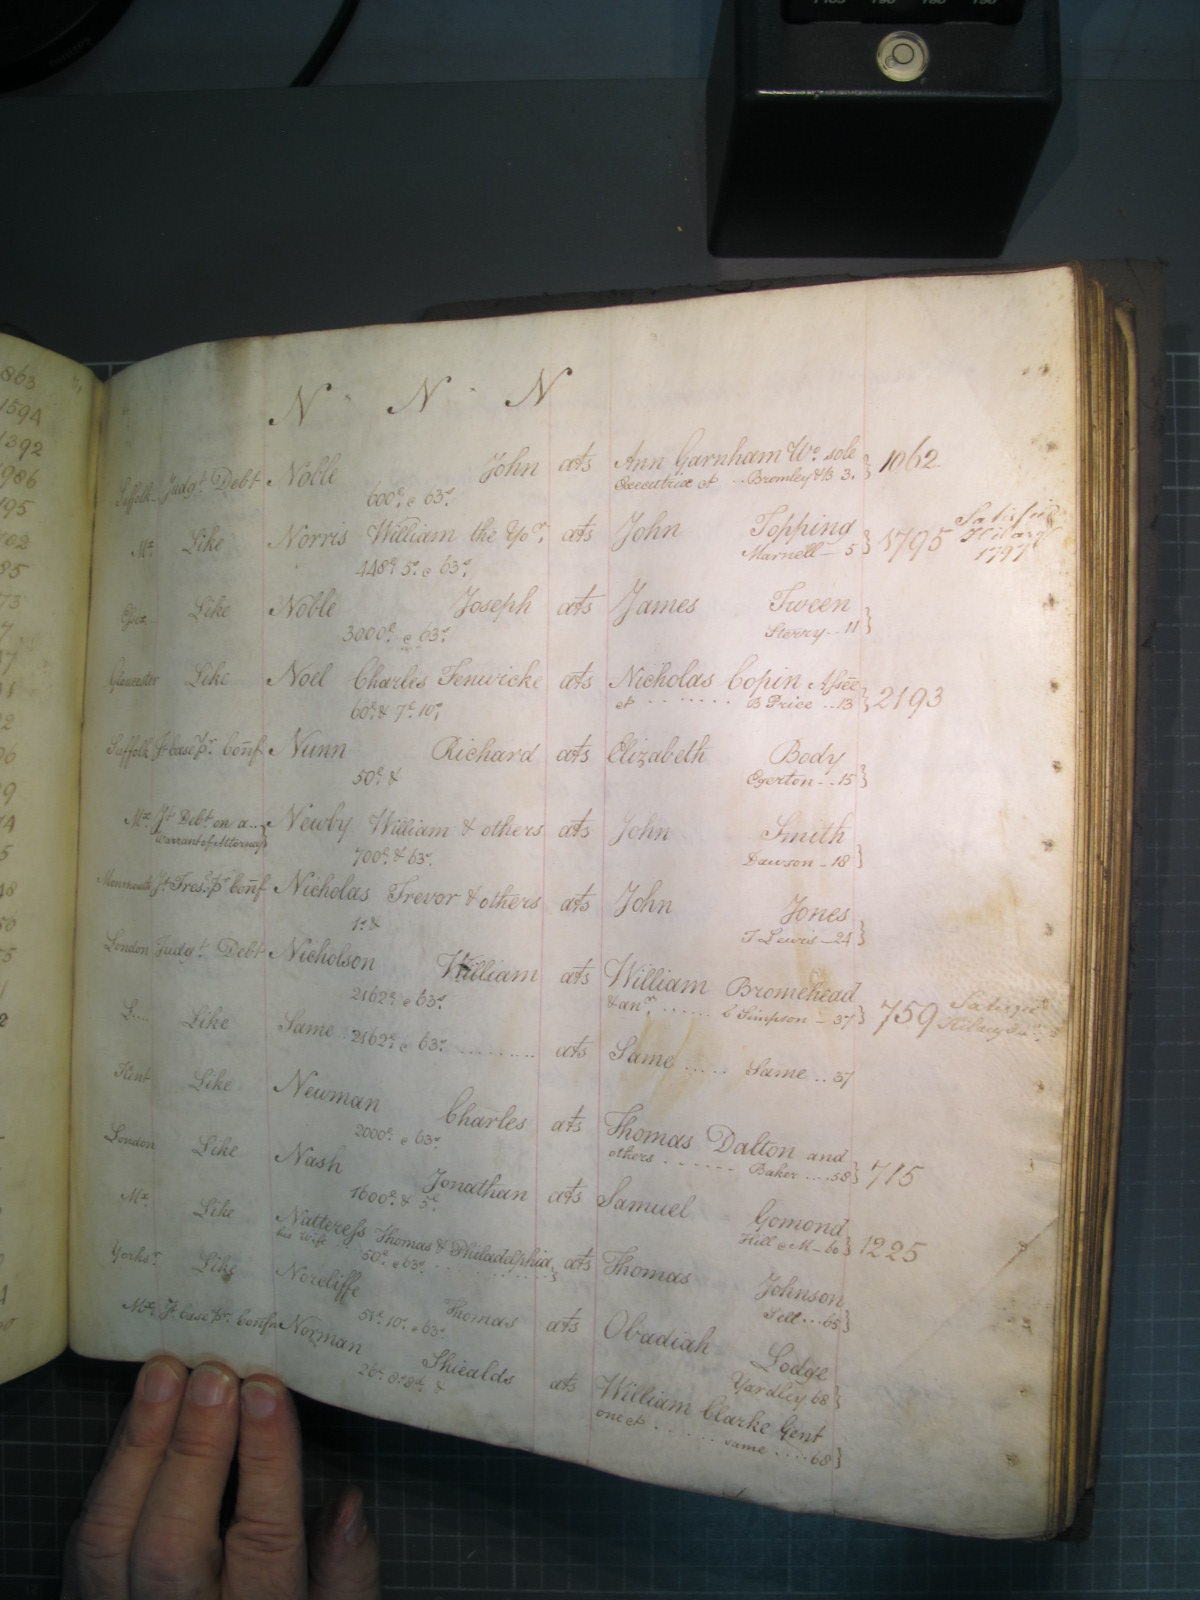 N N N
Suffolk Judgt. Debt Noble John ats Ann Garnham Wo. sole } 1062
600£ & 63s. Executrix &c .. Bromley & B 3.
Mx. Like Norris William the Yor. ats John Topping } 1795 Satisfied
448£ 5s. & 63s. Marnell — 5 Hilary
1797
Essex Like Noble Joseph ats James Tween }
3000£ & 63s. Sterry .. 11
Gloucester Like Noel Charles Fenwicke ats Nicholas Copin Assee } 2193
60£ & 7£. 10s. &c ....... B Price .. 13
Suffolk Jt. Case pr. Conf Nunn Richard ats Elizabeth Body
50£ & Egerton .. 15 }
Mx. Jt. Debt on a .. Newby William & others ats John Smith
Warrant of Attorney 700£ & 63s. Dawson — 18 }
Monmouth Jt. Tres. pr. Conf Nicholas Trevor & others ats John Jones
1s & T Lewis — 24 }
London Judgt. Debt Nicholson William ats William Bromehead
2162£ & 63s. & anr. ...... C Simpson — 37 } 759 Satisfied
L.... Like Same 2162£ & 63s. ......... ats Same ..... Same .. 37
Kent Like Newman Charles ats Thomas Dalton and
2000£ & 63s. others ...... Baker .... 58 } 715
London Like Nash Jonathan ats Samuel Gomond
1600£ & 5£ Hill & M — 60 } 1225
Mx. Like Natteress Thomas & Philadelphia ats Thomas Johnson
his Wife 50£ & 63s. ......... Sell ... 65 }
Yorks. Like Norcliffe Thomas ats Obadiah Lodge
51£. 10s. & 63s. Yardley 68 }
Mx. Jt. Case pr. Confn Norman Shiealds ats William Clarke Gent
26£. 8s. 8d. & one &c ....... same .... 68 }
863
1594
1392
986